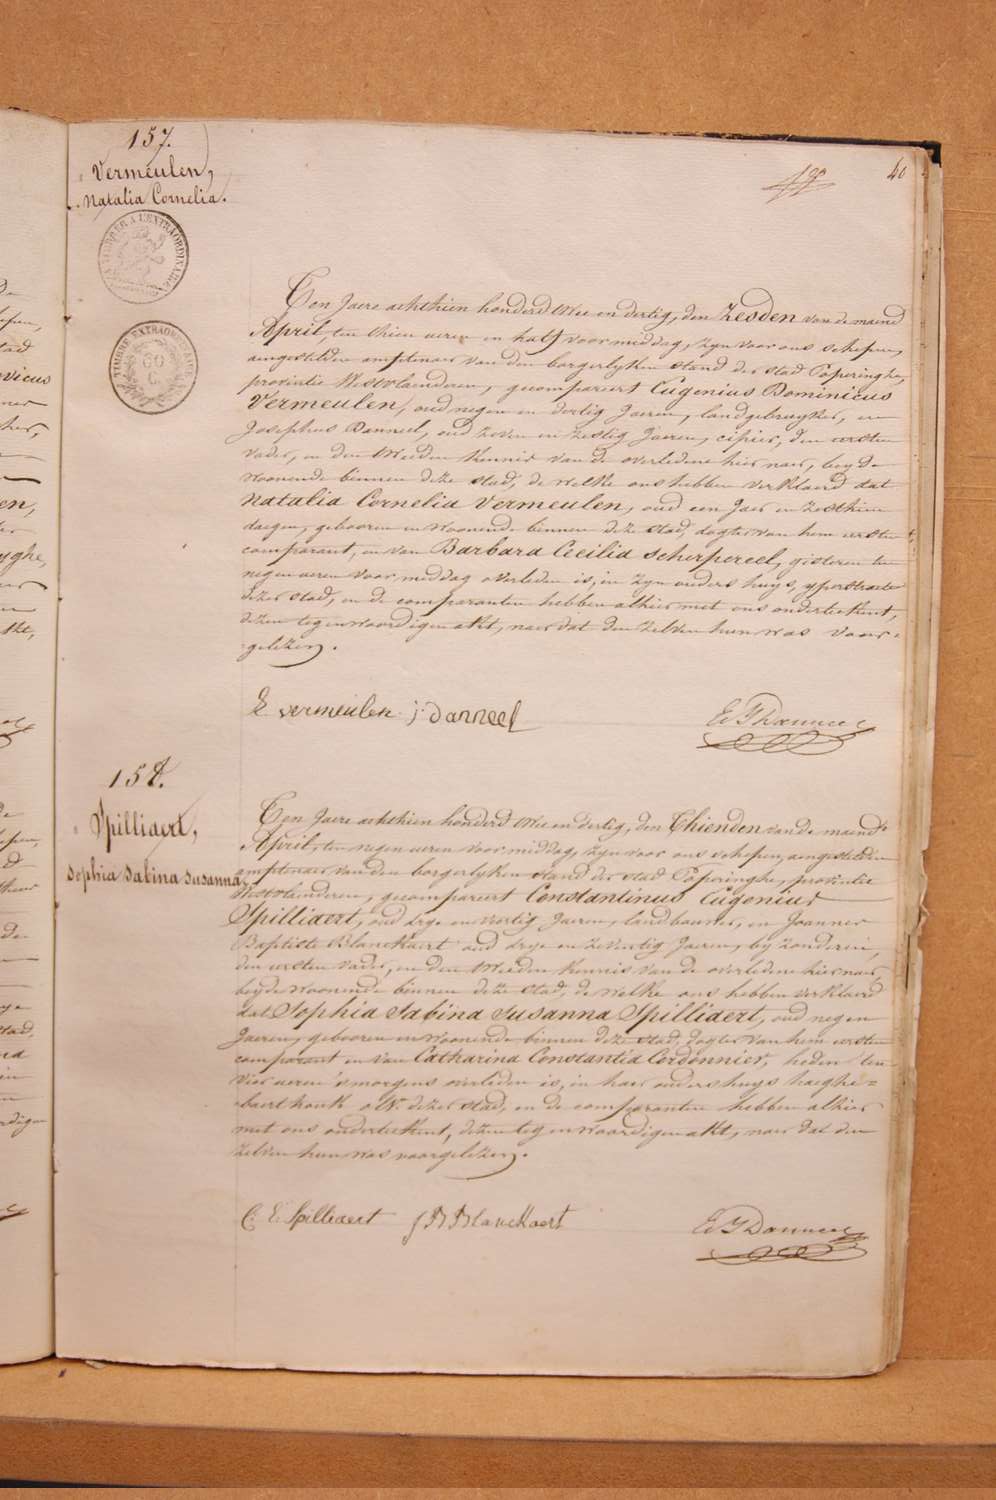 157.
Vermeulen,
Natalia Cornelia.
40
TIMBRE A L'EXTRAORDINAIRE
TIMBRE EXTRAORDINAIRE
Ten Jaere achthien honderd twee en dertig, den Zesden van de maend
April, ten thien ueren en half voormiddag, zyn voor ons schepen,
aengestelden amptenaer van den borgerlyken stand der stad Poperinghe,
provintie Westvlaenderen, gecompareert Eugenius Dominicus
Vermeulen, oud negen en dertig Jaeren, landgebruyker, en
Josephus Danneel, oud zeven en zestig Jaeren, cipier, den eersten
vader, en den tweeden Kennis van de overledene hier naer, beyde
woonende binnen deze stad, de welke ons hebben verklaerd dat
Natalia Cornelia Vermeulen, oud een Jaer en zesthien
daegen, gebooren en woonende binnen deze stad, dogter van hem eersten
comparant, en van Barbara Cecilia Scherpereel, gisteren ten
negen ueren voormiddag overleden is, in zyn ouders huys, yperstraete
dezer stad, en de comparanten hebben alhier met ons onderteekent,
dezen tegenwoordigen akt, naer dat den zelven hun was voor=
gelezen.
E vermeulen j. Danneel
158.
Spilliaert,
Sophia Sabina Susanna
Ten Jaere achthien honderd twee en dertig, den Thienden van de maend
April, ten negen ueren voormiddag, zyn voor ons schepen, aengestelden
amptenaer van den borgerlyken stand der stad Poperinghe, provintie
Westvlaenderen, gecompareert Constantinus Eugenius
Spilliaert, oud drye en veertig Jaeren, landbouwer, en Joannes
Baptiste Blanckaert oud drye en zeventig Jaeren, byzonderen,
den eersten vader, en den tweeden Kennis van de overledene hier naer,
beyde woonende binnen deze stad, de welke ons hebben verklaerd
dat Sophia Sabina Susanna Spilliaert, oud negen
Jaeren, gebooren en woonende binnen deze stad, dogter van hem eersten
comparant en van Catharina Constantia Cordonnier, heden ten
vier ueren 's morgens overleden is, in haer ouders huys haeghe=
=baerthoek dezer stad, en de comparanten hebben alhier
met ons onderteekent, dezen tegenwoordigen akt, naer dat den
zelven hun was voorgelezen.
C. E. Spilliaert J B Blanckaert